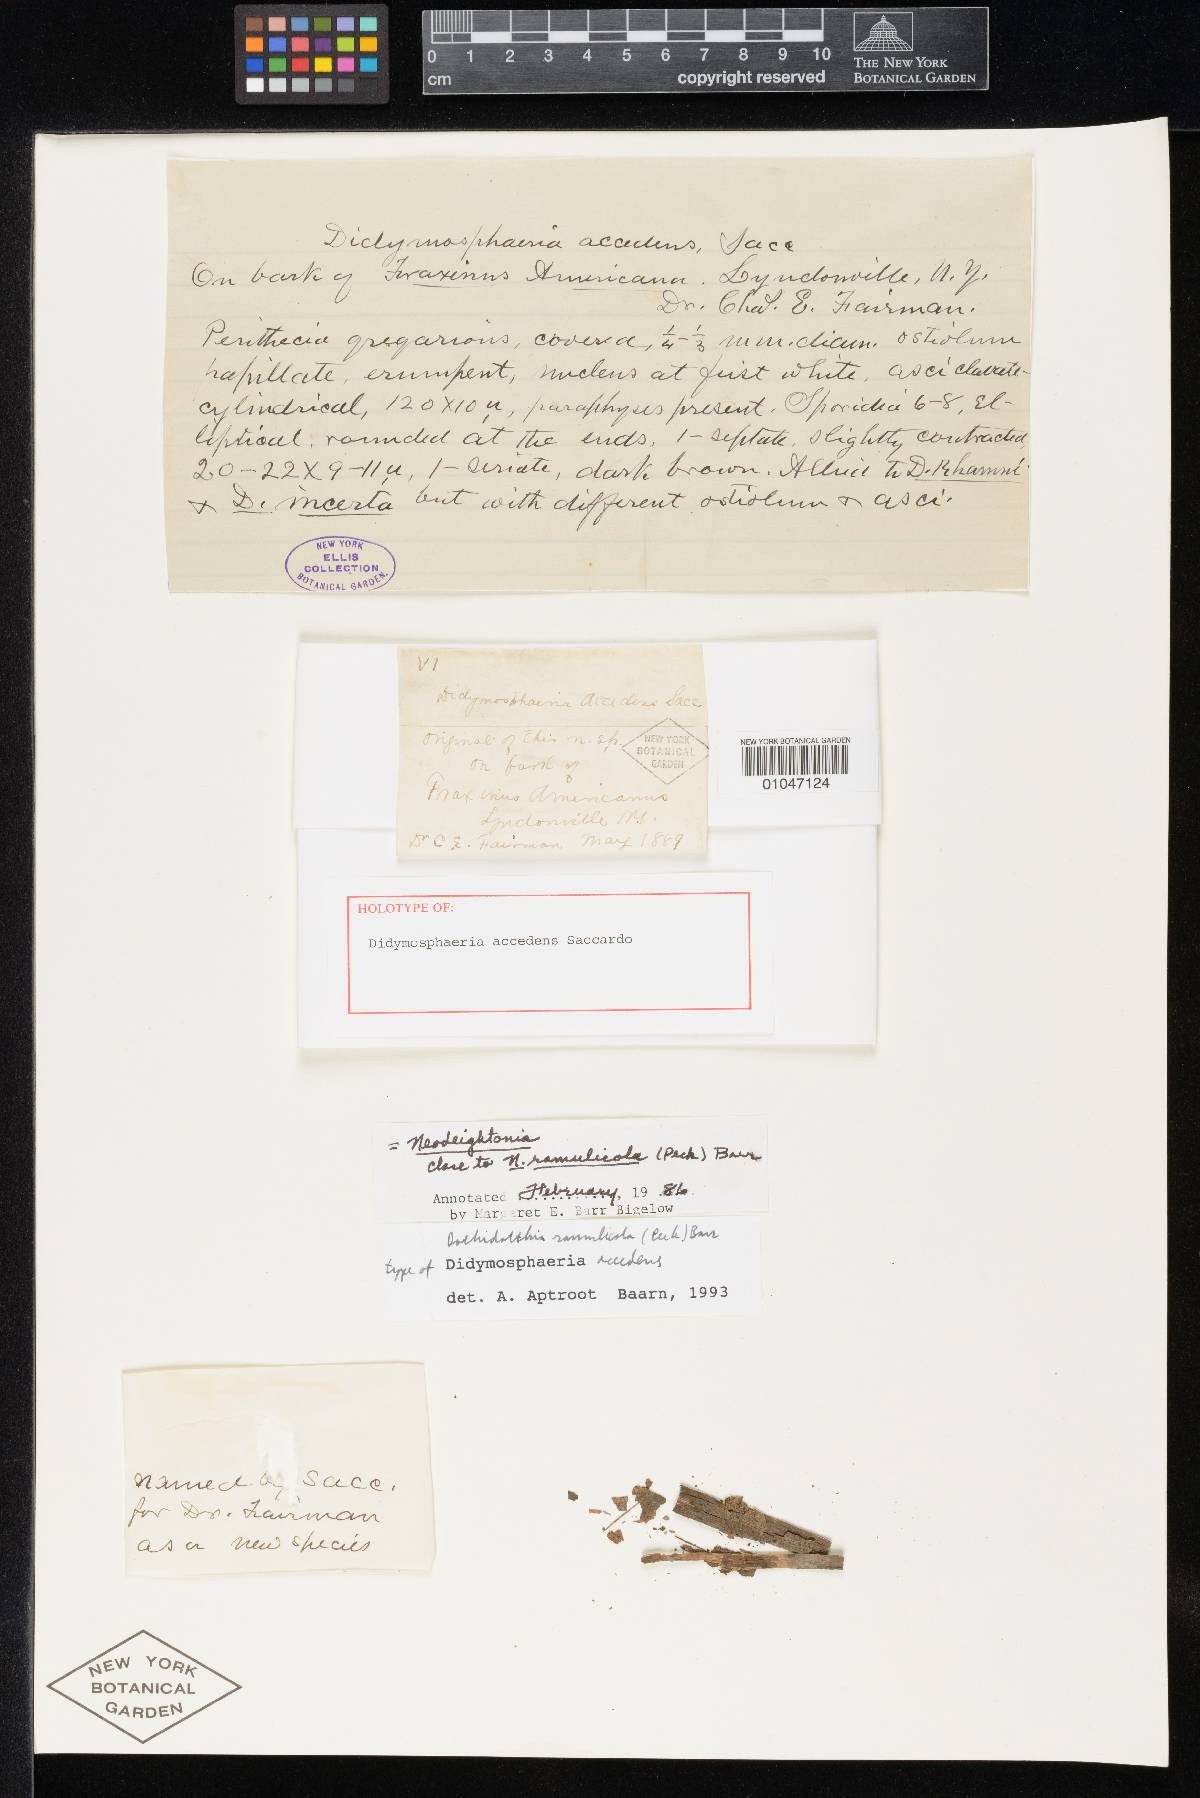 0 1 2 3 4 5 6 7 8 9 10
cm
copyright reserved
THE NEW YORK
BOTANICAL GARDEN
Didymosphaeria accedens, Sacc
On bark of Fraxinus Americana. Lyndonville, N.Y.
Dr. Chas. E. Fairman.
Perithecia gregarious, covered, 1/4-1/3 mm. diam. ostiolum
papillate, erumpent, nucleus at first white, asci clavate-
cylindrical, 120x10 µ, paraphyses present. Sporidia 6-8, El-
liptical, rounded at the ends, 1-septate, slightly contracted,
20-22x9-11µ, 1-seriate, dark brown. Allied to D. Rhamni
& D. incerta, but with different ostiolum & asci.
NEW YORK
ELLIS
COLLECTION
BOTANICAL GARDEN.
VI
Didymosphaeria accedens Sacc
original of this n. sp.
on bark of
Fraxinus Americanus
Lyndonville NY.
Dr C E. Fairman May 1889
NEW YORK
BOTANICAL
GARDEN
NEW YORK BOTANICAL GARDEN
01047124
HOLOTYPE OF:
Didymosphaeria accedens Saccardo
= Neodeightonia
close to N. ramulicola (Peck) Barr
Annotated February, 1986
by Margaret E. Barr Bigelow
Dothidotthia ramulicola (Peck) Barr
type of Didymosphaeria accedens
det. A. Aptroot Baarn, 1993
named by Sacc.
for Dr. Fairman
as a new species
NEW YORK
BOTANICAL
GARDEN